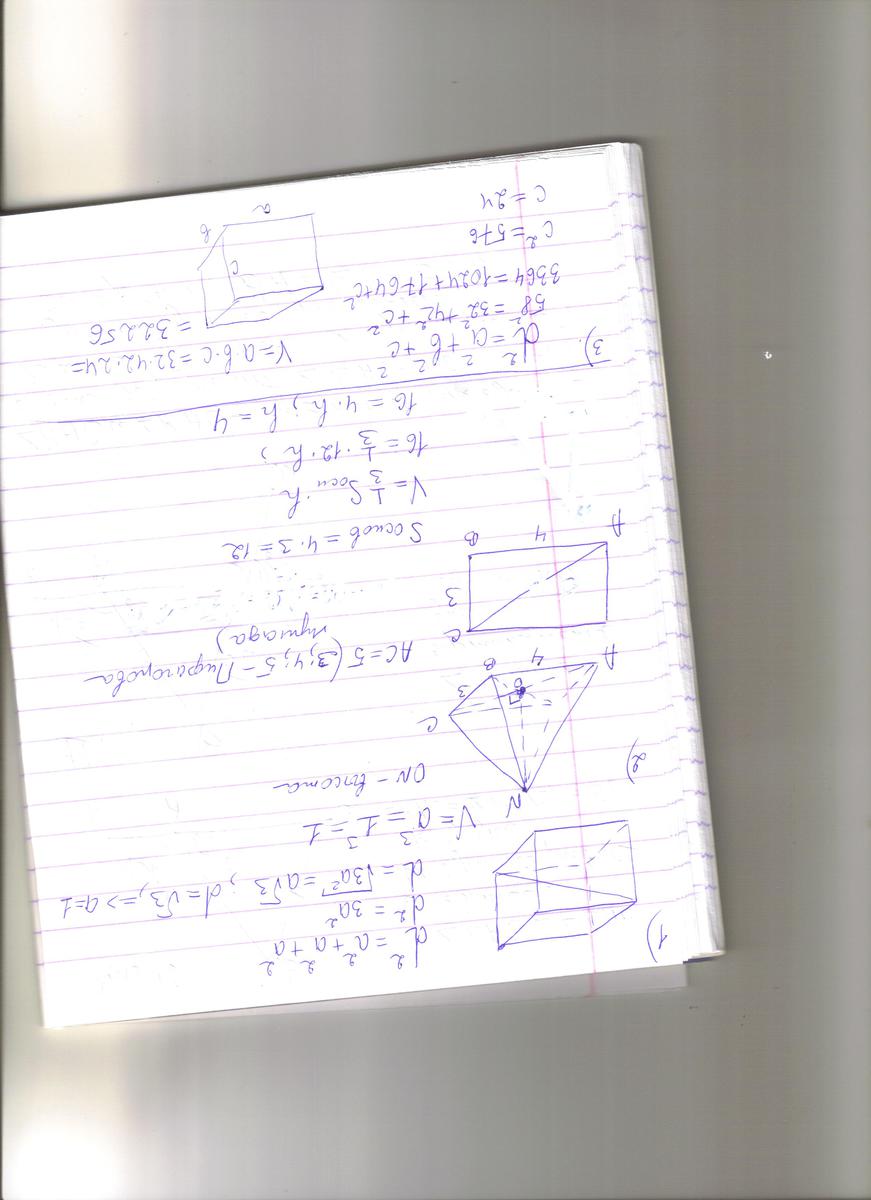 1)
d² = a² + a² + a²
d² = 3a²
d = √3a² = a√3 ; d = √3, => a=1
V = a³ = 1³ = 1
2)
N
C
3
B
O
4
A
ON - высота
AC = 5 (3;4;5 - Пифагорова
триада)
C
3
B
4
A
Sоснов = 4·3 = 12
V = 1/3 Sосн · h
16 = 1/3 · 12 · h ;
16 = 4 · h ; h = 4
3).
d² = a² + b² + c²
58² = 32² + 42² + c²
3364 = 1024 + 1764 + c²
c² = 576
c = 24
V = a·b·c = 32·42·24 =
= 32256
c
b
a